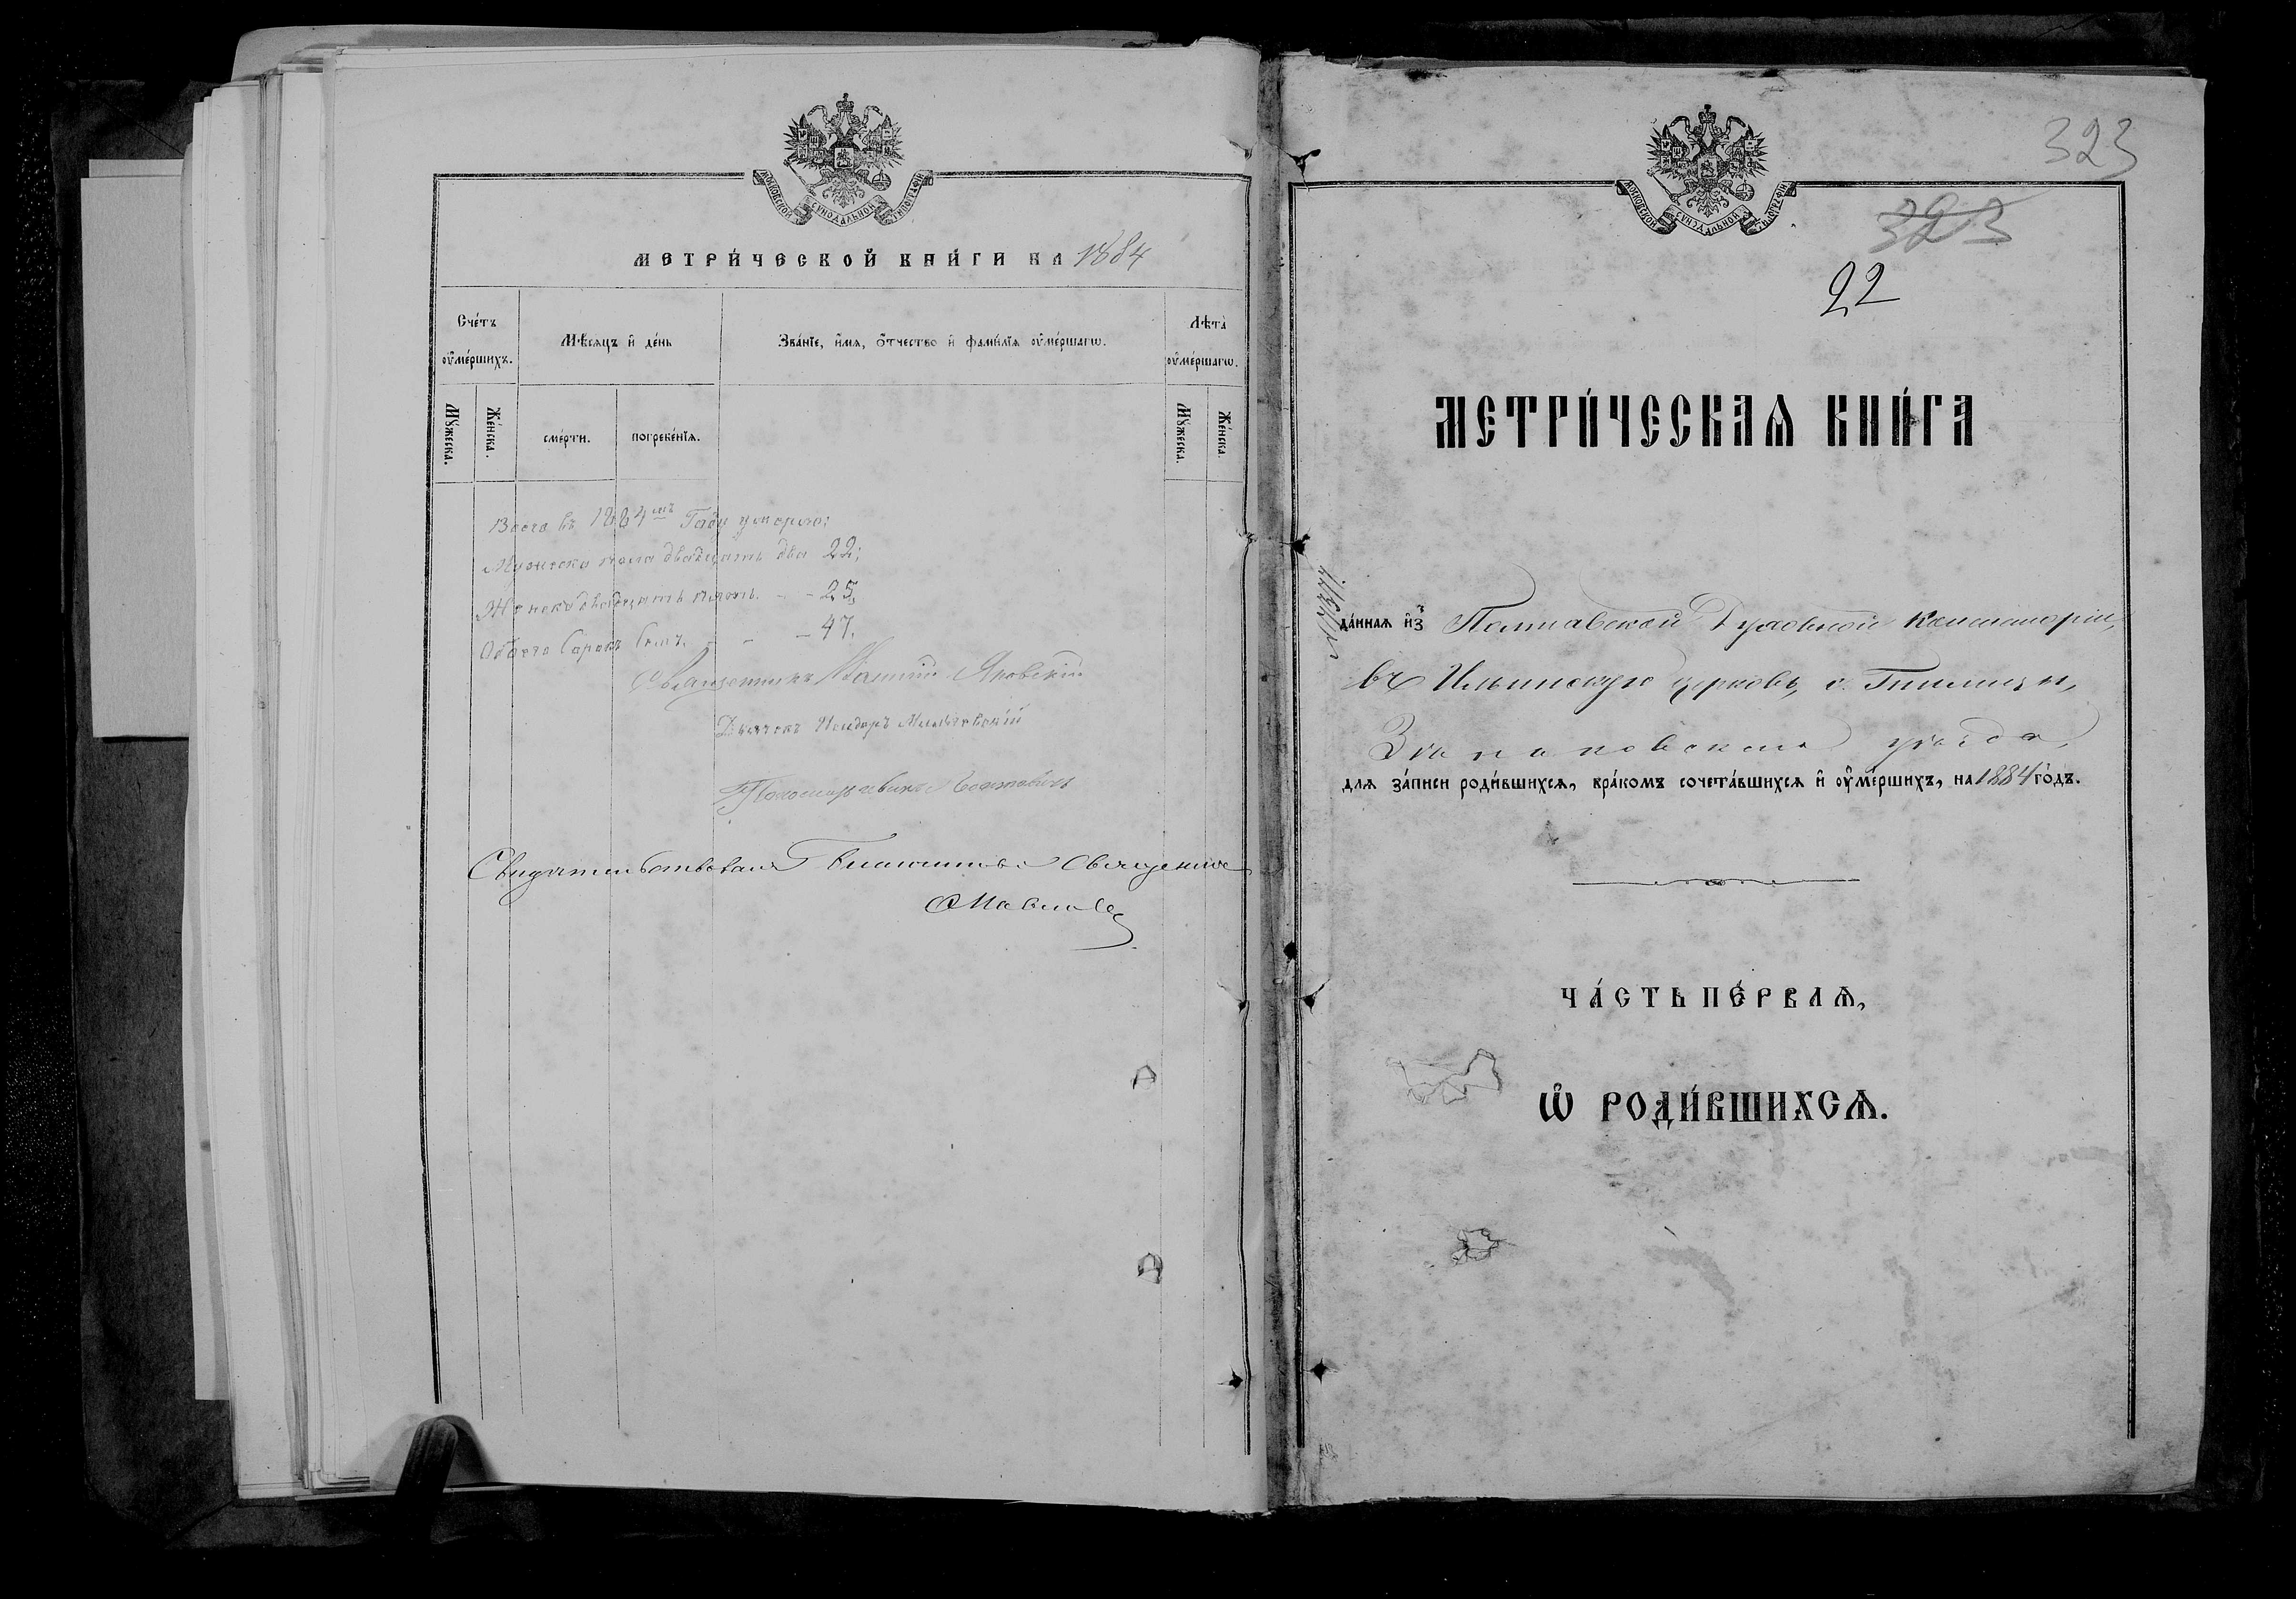 МОСКОВСКОЙ СѴНОДАЛЬНОЙ ТИПОГРАФІИ
МЕТРИ́ЧЕСКОЙ КНИ́ГИ НА 1884
Сче́тъ оу҆ме́ршихъ.
Мѣ́сяцъ и҆ де́нь
Зва́нїе, и҆́мѧ, ѻ҆́тчество и҆ фами́лїѧ оу҆ме́ршагѡ.
Лѣта̀ оу҆ме́ршагѡ.
Мꙋ́жеска.
Же́нска.
сме́рти.
погребе́нїѧ.
Мꙋ́жеска.
Же́нска.
Всего въ 1884мъ Году умерло:
Мужеска пола двадцать два 22;
Женска двадцать пять - - 25,
Обоего Сорокъ Семь. - - - 47.
Священникъ Яновскій
Дьячокъ Исидоръ
Свидѣтельствовалъ Благочинный Священникъ
323
МОСКОВСКОЙ СѴНОДАЛЬНОЙ ТИПОГРАФІИ
323
22
МЕТРИ́ЧЕСКАѦ КНИ́ГА
да́ннаѧ и҆з̾ Полтавской Духовной Консисторіи,
въ Ильинскую церковь, с. Гнилицы,
Зѣньковскаго уѣзда,
для за́писи роди́вшихсѧ, бра́комъ сочета́вшихсѧ и҆ оу҆ме́ршихъ, на 1884 го́дъ.
ЧА́СТЬ ПЕ́РВАѦ,
Ѡ҆ РОДИ́ВШИХСѦ.